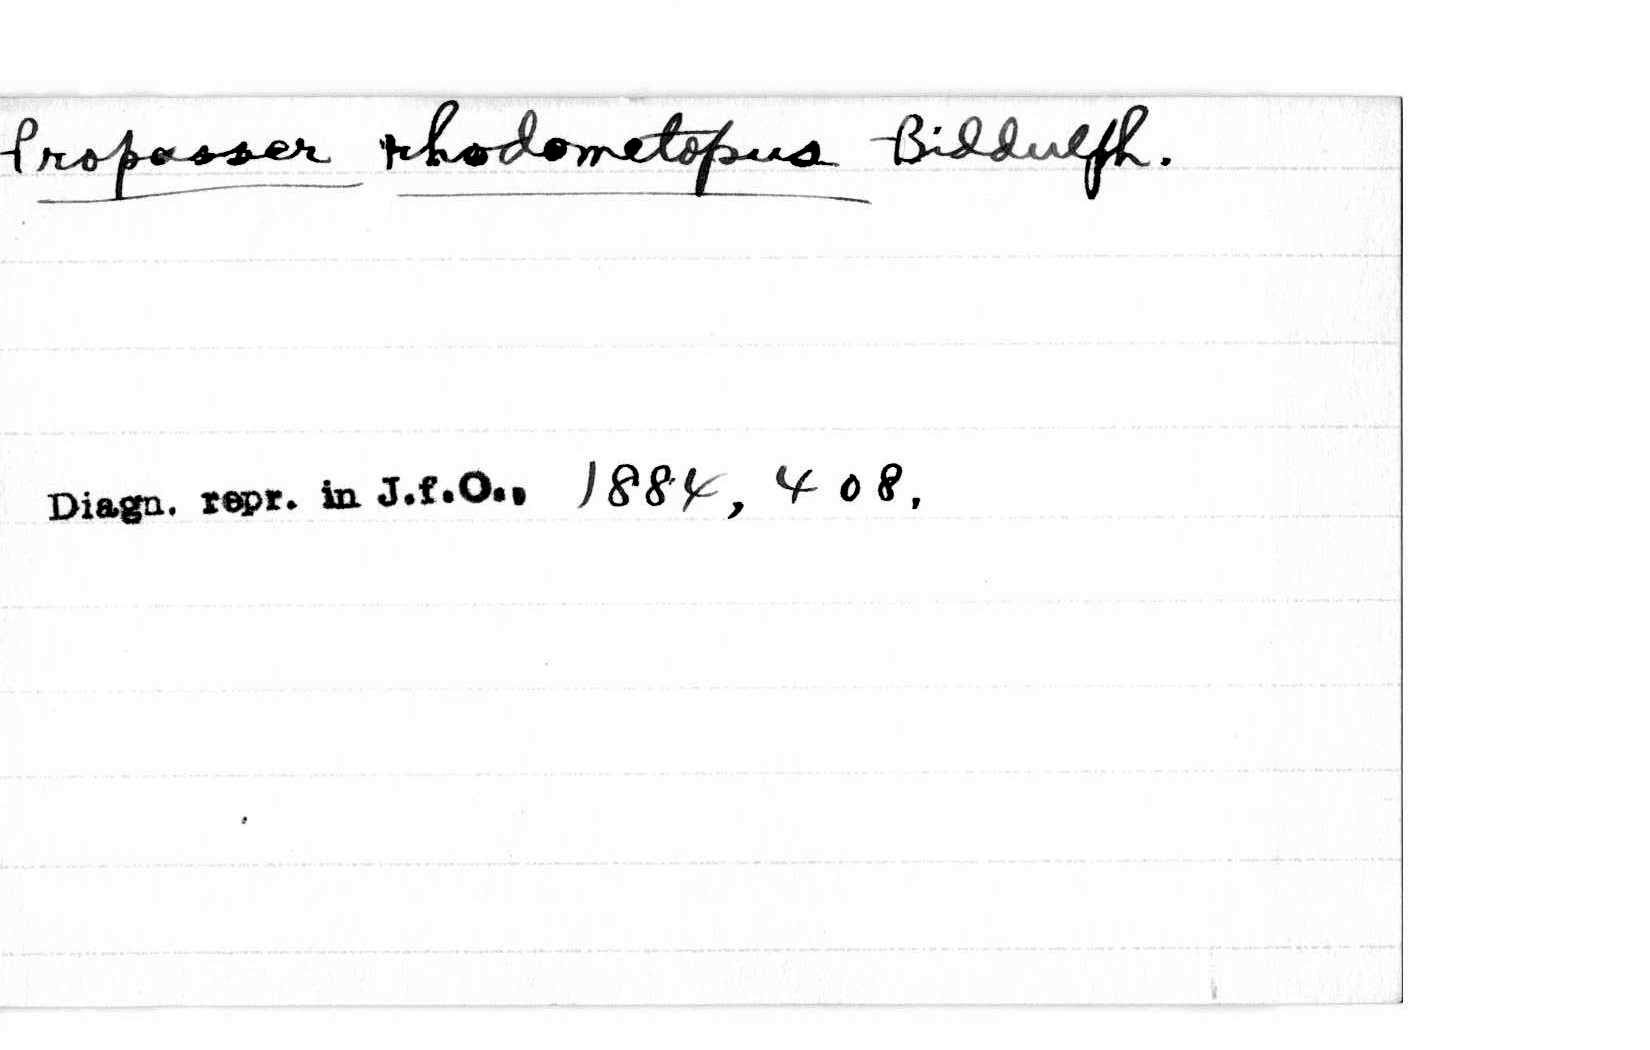 Propasser rhodometopus Biddulph.
Diagn. repr. in J.f.O., 1884, 408.